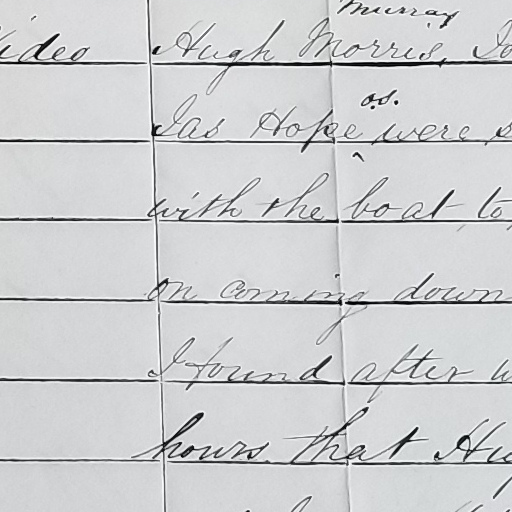 Murray
video Hugh Morris,
o.s.
Jas Hope ^ were
with the boat to
on coming down
I found after
hours that